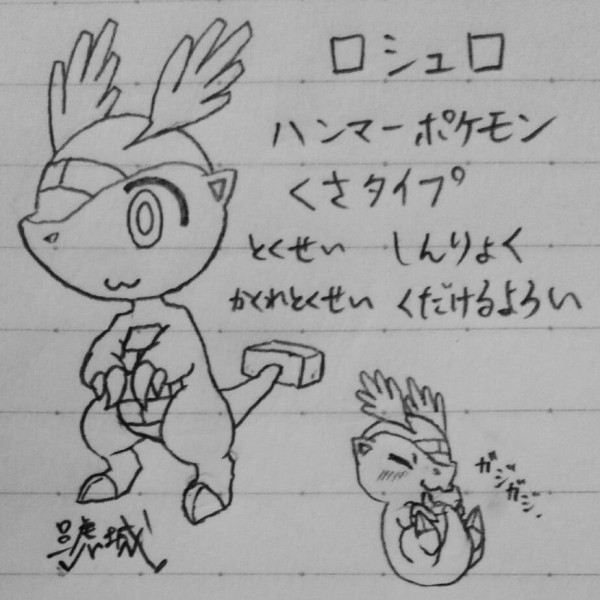 ロシュロ
ハンマーポケモン
くさタイプ
とくせい しんりょく
かくれとくせい くだけるよろい
ガジ
ガジ